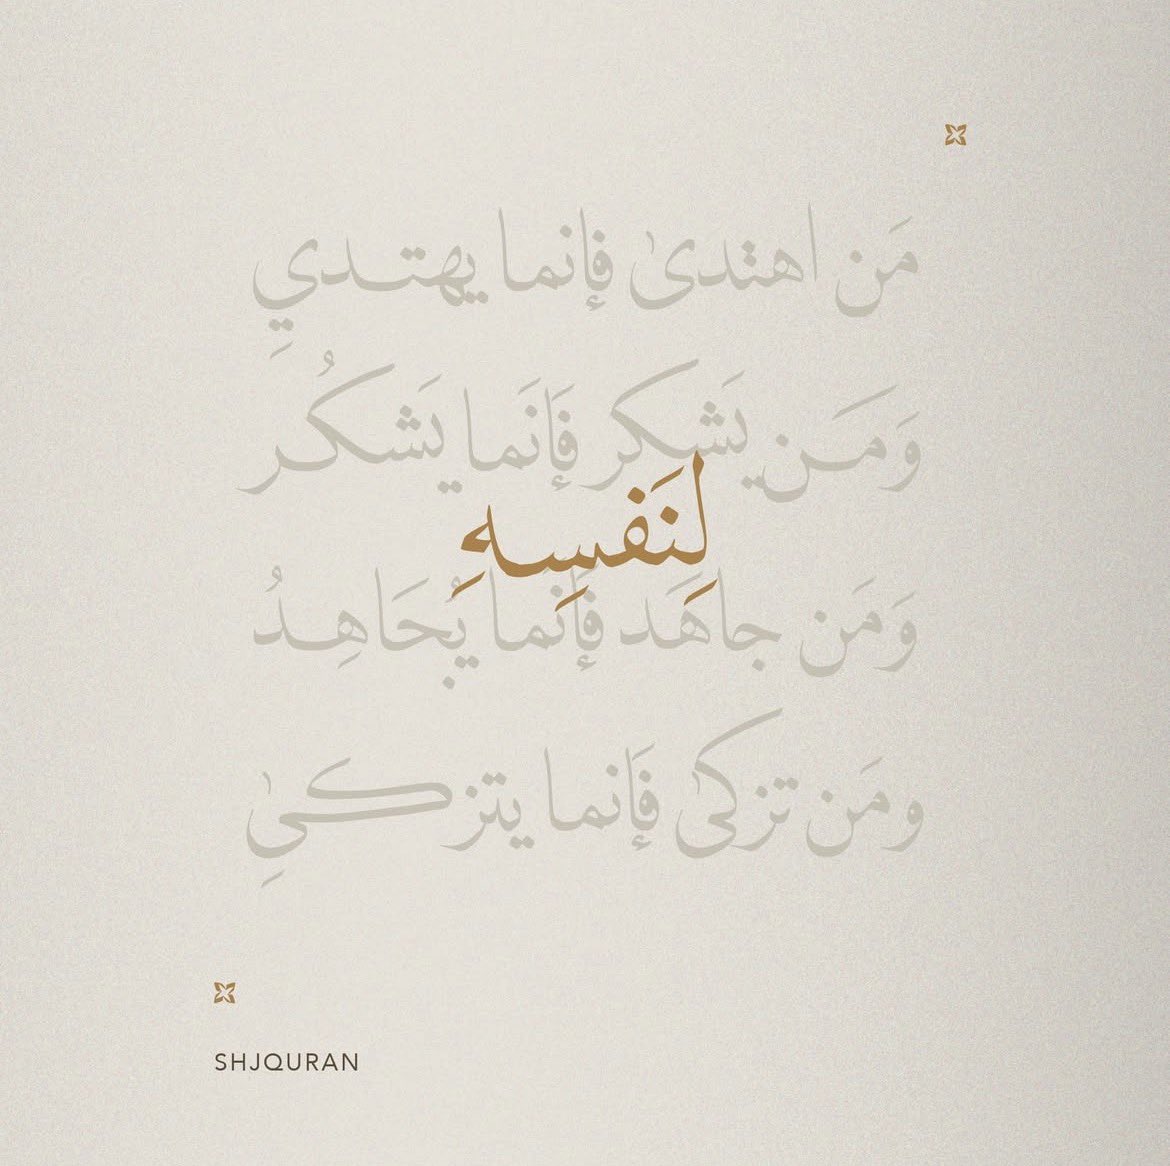 مَن اهتدىٰ فإنما يهتدي
وَمَن يشكر فَإنَما يَشكُر
لِنَفسِهِ
وَمَن جاهَد فَإنَما يُجَاهِدُ
ومَن تزكىٰ فَإنما يتزكىٰ
SHJQURAN